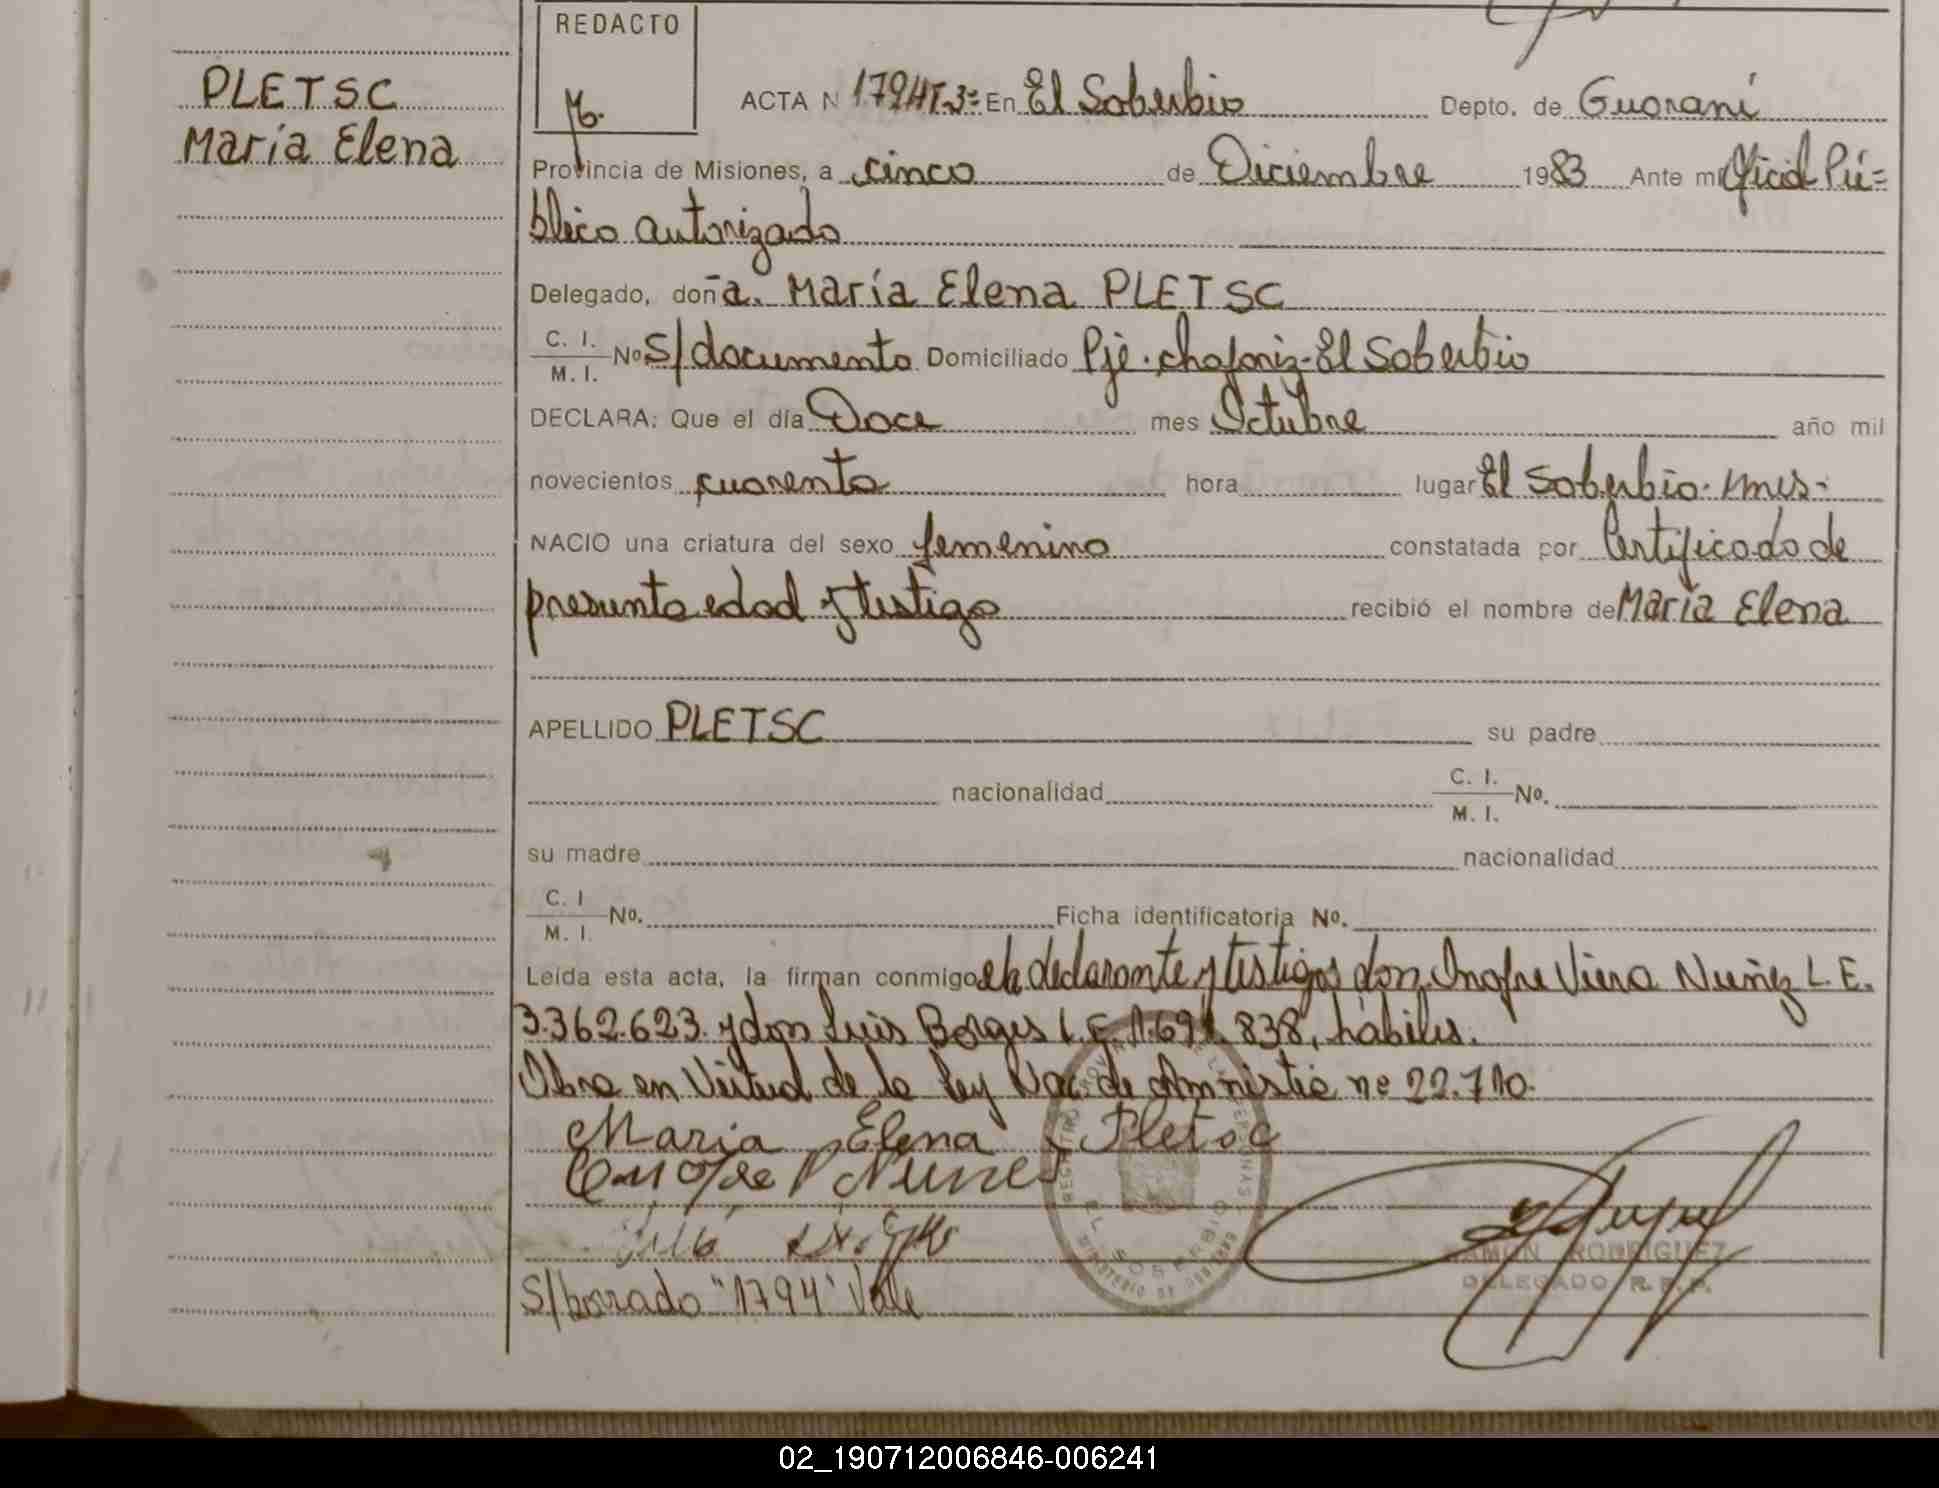 REDACTO
PLETSC
María Elena
ACTA N 1794T.3º En El Soberbio Depto. de Guaraní
Provincia de Misiones, a cinco de Diciembre 1983 Ante mi Oficial Pú=
blico autorizado
Delegado, doña. María Elena PLETSC
C. I.
M. I. Nº S/documento Domiciliado Pje. chafariz-El Soberbio
DECLARA: Que el día Doce mes Octubre año mil
novecientos cuarenta hora lugar El Soberbio. Mnes-
NACIO una criatura del sexo femenino constatada por Certificado de
presunta edad y testigo recibió el nombre de María Elena
APELLIDO PLETSC su padre
nacionalidad C. I.
M. I. Nº.
su madre nacionalidad
C. I
M. I. Nº. Ficha identificatoria Nº.
Leída esta acta, la firman conmigo la declarante y testigos don Viera Nuñez L.E.
3.362.623. y don Luis Borges L.E. 1.691.838, hábiles.
Obra en Virtud de la ley Nac. de Amnistia nº 22.710.
Maria Elena Pletsc
Nunes
REGISTRO PROVINCIAL DE LAS PERSONAS
EL SOBERBIO
MINISTERIO DE GOBIERNO
RAMON RODRIGUEZ
DELEGADO R.P.P.
S/borrado "1794" Vale
02_190712006846-006241